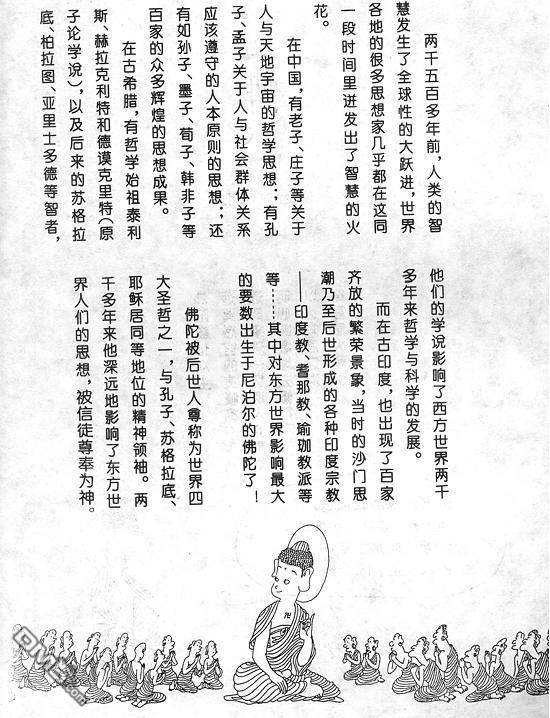 两千五百多年前，人类的智
慧发生了全球性的大跃进，世界
各地的很多思想家几乎都在这同
一段时间里迸发出了智慧的火
花。
在中国，有老子、庄子等关于
人与天地宇宙的哲学思想；有孔
子、孟子关于人与社会群体关系
应该遵守的人本原则的思想；还
有如孙子、墨子、荀子、韩非子等
百家的众多辉煌的思想成果。
在古希腊，有哲学始祖泰利
斯、赫拉克利特和德谟克里特（原
子论学说），以及后来的苏格拉
底、柏拉图、亚里士多德等智者，
他们的学说影响了西方世界两千
多年来哲学与科学的发展。
而在古印度，也出现了百家
齐放的繁荣景象，当时的沙门思
潮乃至后世形成的各种印度宗教
——印度教、耆那教、瑜珈教派等
等……其中对东方世界影响最大
的要数出生于尼泊尔的佛陀了！
佛陀被后世人尊称为世界四
大圣哲之一，与孔子、苏格拉底、
耶稣居同等地位的精神领袖。两
千多年来他深远地影响了东方世
界人们的思想，被信徒尊奉为神。
卍